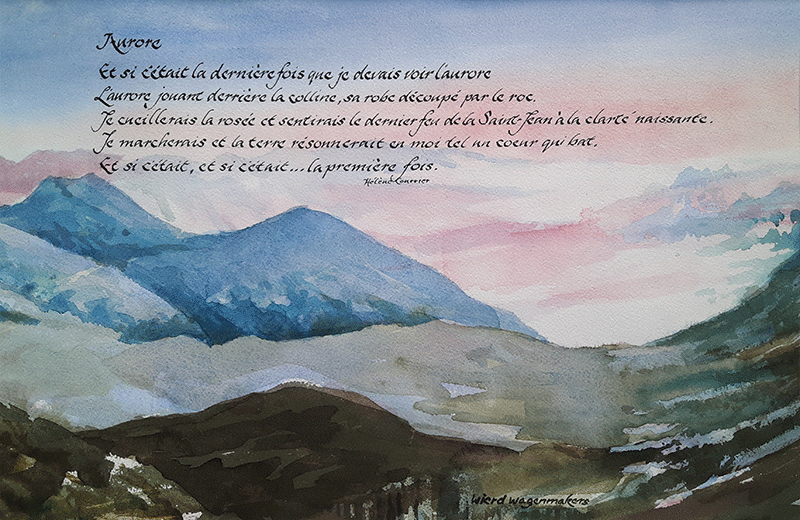 Aurore
Et si c'était la dernière fois que je devais voir l'aurore
L'aurore jouant derrière la colline, sa robe découpé par le roc.
Je cueillerais la rosée et sentirais le dernier feu de la Saint-Jean à la clarté naissante.
Je marcherais et la terre résonnerait en moi tel un coeur qui bat.
Et si c'était, et si c'était... la première fois.
Hélène
Wierd Wagenmakers